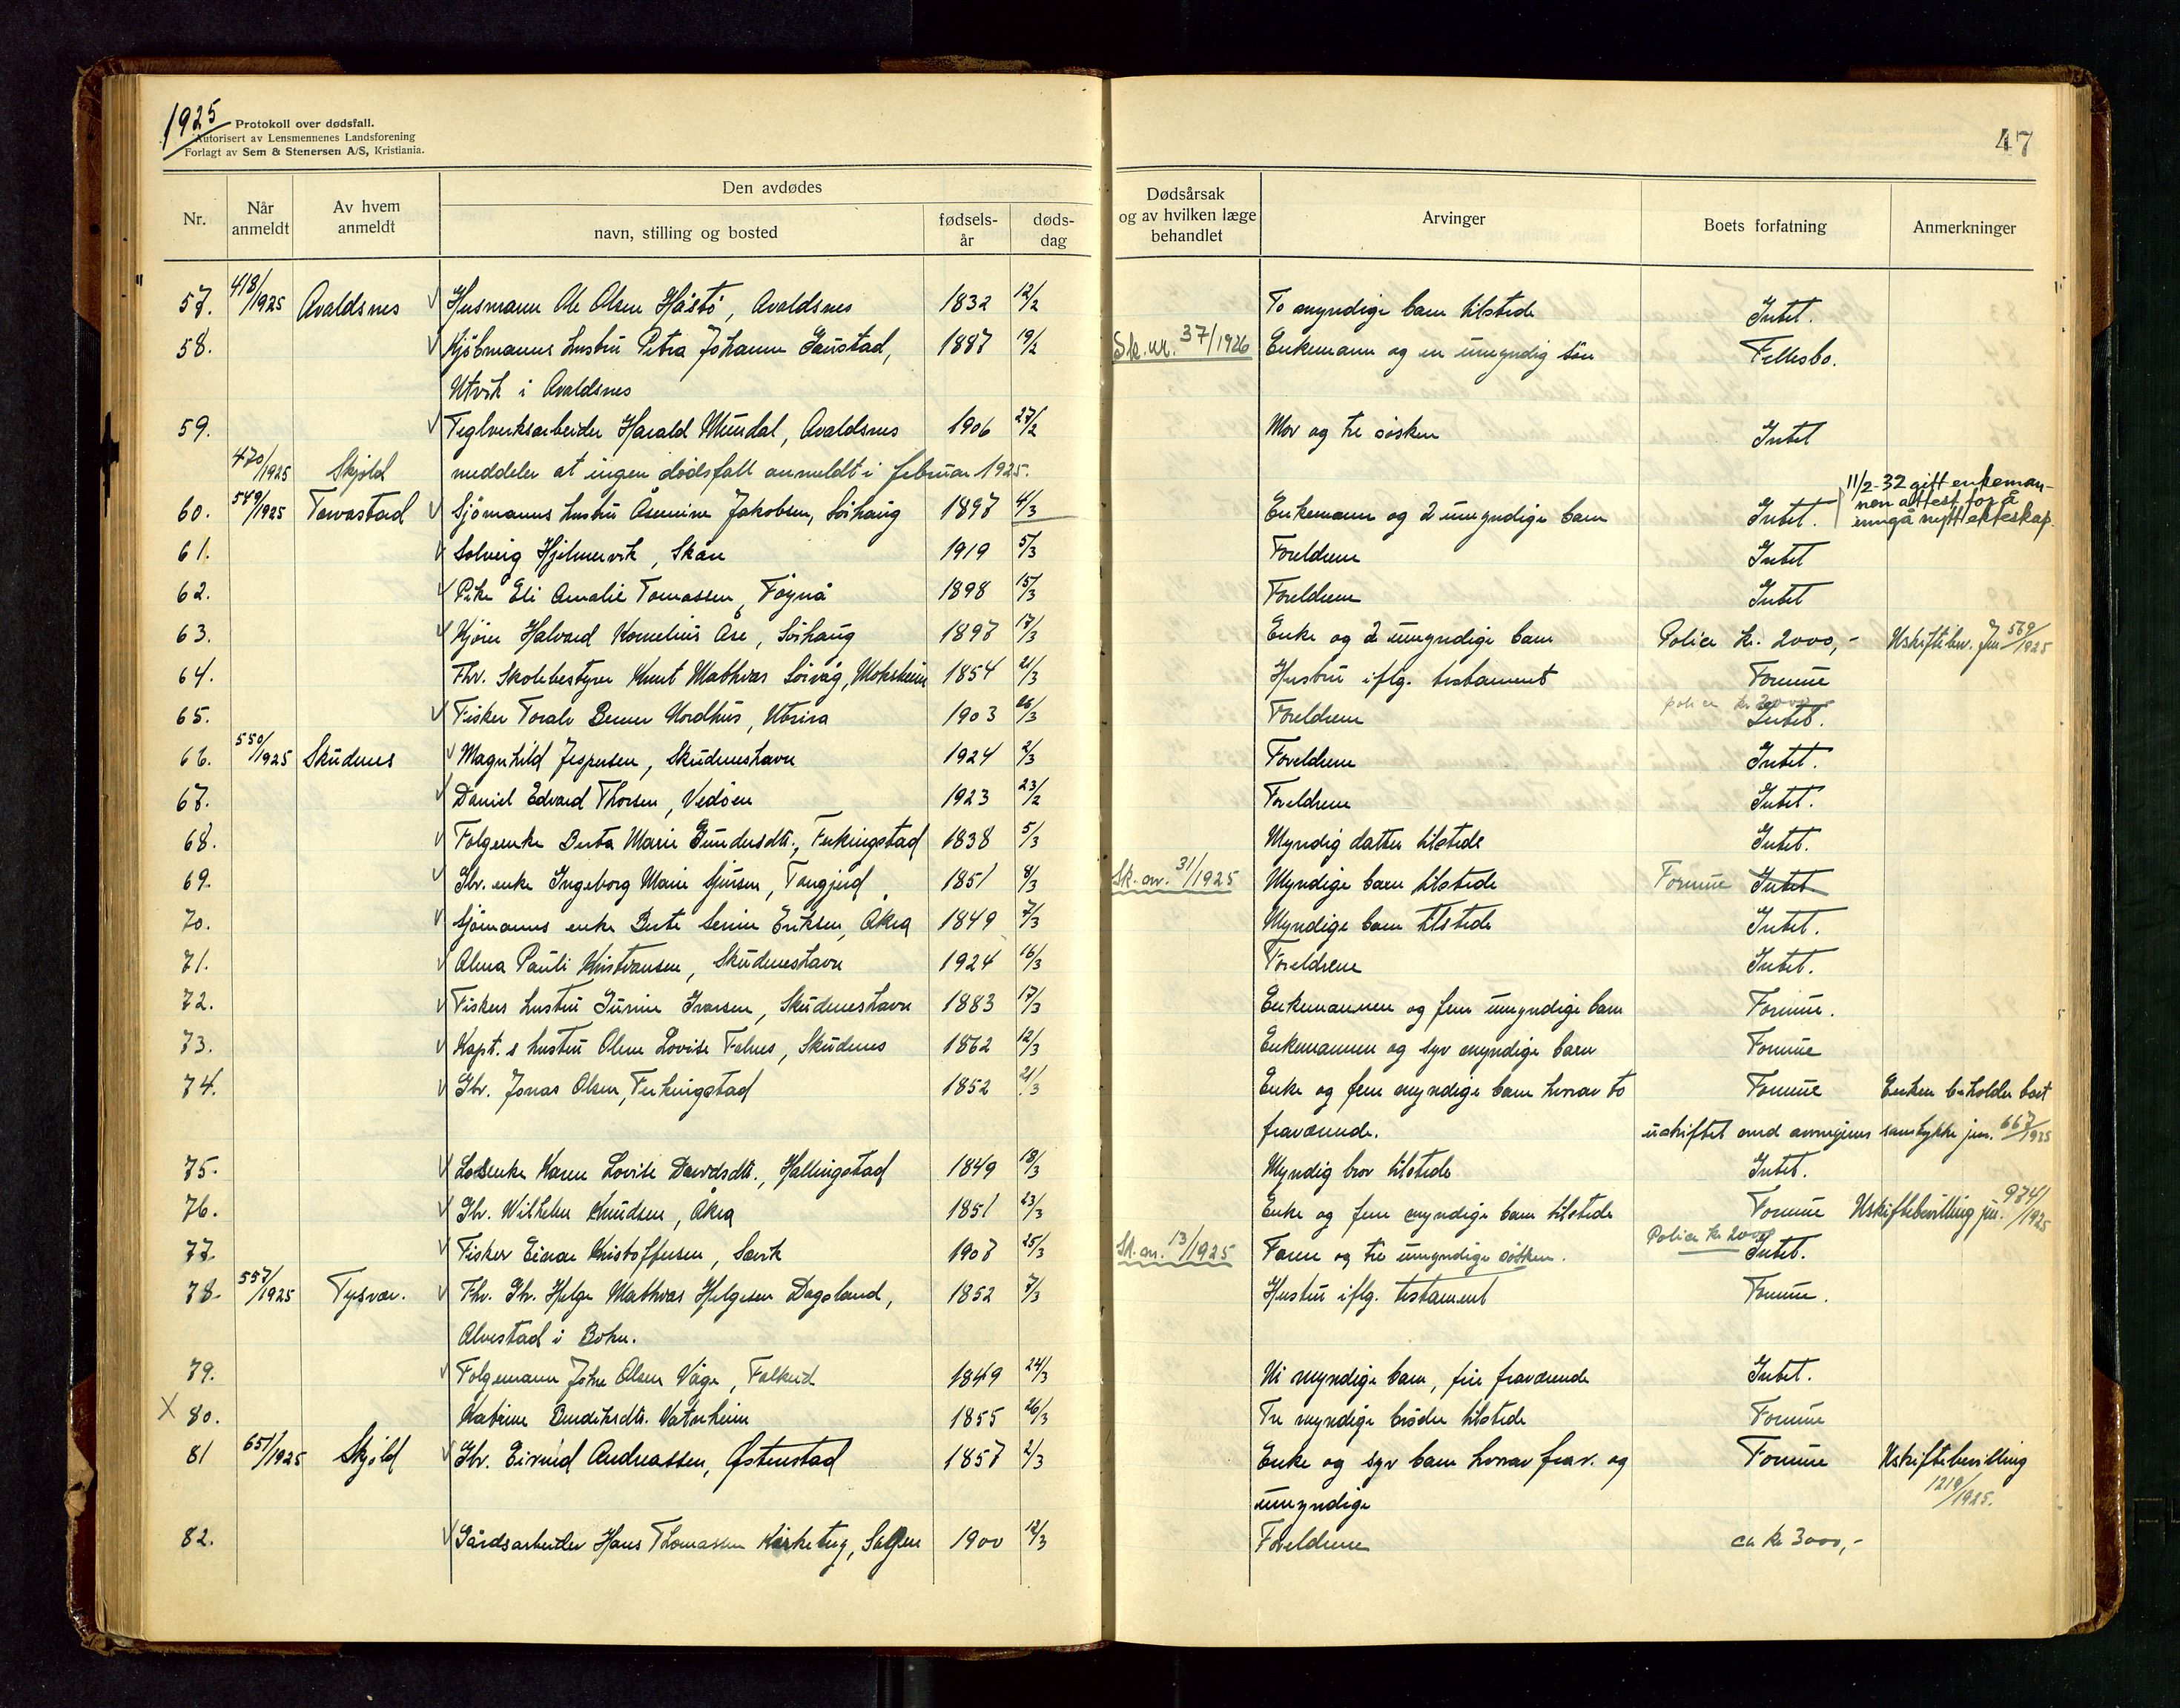 1925
Protokoll over dødsfall.
Autorisert av Lensmennenes Landsforening
Forlagt av Sem & Stenersen A/S, Kristiania.
47
Nr. Når anmeldt Av hvem anmeldt Den avdødes navn, stilling og bosted fødsels-år døds-dag Dødsårsak og av hvilken læge behandlet Arvinger Boets forfatning Anmerkninger
57. 418/1925 Avaldsnes Husmann Ole Olsen Håstö, Avaldsnes 1832 12/2 To myndige barn tilstede Intet.
58. Kjöbmanns hustru Petra Johanne Gaustad, 1887 19/2 Sk. nr. 37/1926 Enkemann og en umyndig sön Fellesbo.
Utvik i Avaldsnes
59. Teglverksarbeider Harald Mundal, Avaldsnes 1906 27/2 Mor og tre sösken Intet
470/1925 Skjold meddeler at ingen dödsfall anmeldt i februar 1925.
11/2-32 gitt enkeman-
nen attest for å
inngå nytt ekteskap.
60. 549/1925 Torvastad Sjömanns hustru Åsemine Jakobsen, Sörhaug 1897 4/3 Enkemann og 2 umyndige barn Intet.
61. Solveig Hjelmervik, Skåre 1919 5/3 Foreldrene Intet
62. Pike Eli Amalie Tomassen, Föynå 1898 15/3 Foreldrene Intet
63. Kjörer Halvard Kornelius Åse, Sörhaug 1897 17/3 Enke og 2 umyndige barn Police kr. 2000,- Uskiftebev. Jnr. 569/1925
64. Fhv. Skolebestyrer Knut Mathias Sörvåg, Moksheim 1854 21/3 Hustru iflg. testament Formue
65. Fisker Toralv Berner Nordhus, Utsira 1903 26/3 Foreldrene police kr. 2000 Intet.
66. 550/1925 Skudenes Magnhild Jespersen, Skudeneshavn 1924 2/3 Foreldrene Intet.
67. Daniel Edvard Thorsen, Vedöen 1923 23/2 Foreldrene Intet.
68. Folgeenke Berta Marie Gundersdtr., Ferkingstad 1838 5/3 Myndig datter tilstede Intet.
69. Gbr. enke Ingeborg Marie Sjursen, Tangjerd 1851 8/3 Sk. nr. 31/1925 Myndige barn tilstede Formue Intet
70. Sjömanns enke Berte Serine Eriksen, Åkra 1849 7/3 Myndige barn tilstede Intet.
71. Alma Pauli Kristiansen, Skudeneshavn 1924 16/3 Foreldrene Intet.
72. Fiskers hustru Gurine Ivarsen, Skudeneshavn 1883 17/3 Enkemannen og fem umyndige barn Formue.
73. Kapt.s hustru Olene Lovise Falnes, Skudenes 1862 12/3 Enkemannen og syv myndige barn Formue
74. Gbr. Jonas Olsen, Ferkingstad 1852 21/3 Enke og fem myndige barn hvorav to Formue Enken beholder boet
fraværende. uskiftet med arvingers samtykke jnr. 667/1925
75. Losenke Karen Lovise Davidsdtr., Hallingstad 1849 18/3 Myndig bror tilstede Intet.
76. Gbr. Wilhelm Knudsen, Åkra 1851 23/3 Enke og fem myndige barn tilstede Formue Uskiftebevilling jnr. 974/1925
77. Fisker Einar Kristoffersen, Sævik 1907 25/3 Sk. nr. 13/1925 Farer og tre umyndige söskem. Police kr 2000 Intet.
78. 557/1925 Tysvær. Fhv. Gbr. Helge Mathias Helgesen Dagsland, 1852 7/3 Hustru iflg. testament Formue.
Alvestad i Bokn.
79. Folgemann John Olsen Våge, Falkeid 1849 24/3 Ni myndige barn, fire fraværende Intet.
X 80. Katrine Bendiksdtr. Vatnheim 1855 26/3 Tre myndige brödre tilstede Formue
81 651/1925 Skjold Gbr. Eivind Andreassen, Østenstad 1857 2/3 Enke og syv barn hvorav frav. og Formue Uskiftebevilling
umyndige 1219/1925.
82. Gårdsarbeider Hans Thomassen Kirketeig, 1900 12/3 Foreldrene ca kr 3000,-